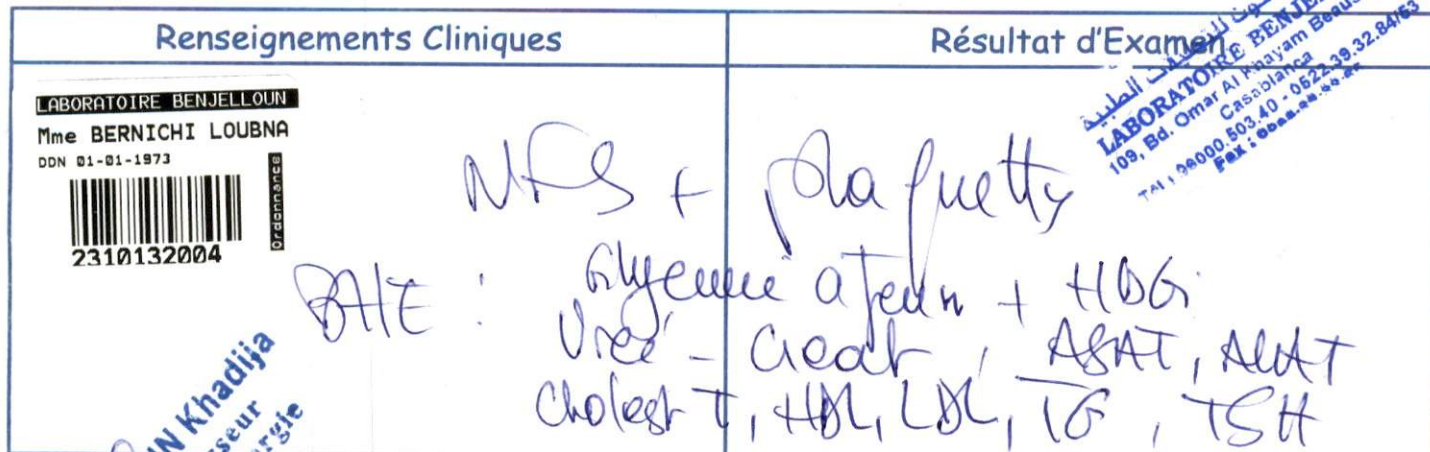 Renseignements Cliniques
Résultat d'Examen
LABORATOIRE BENJELLOUN
Mme BERNICHI LOUBNA
DDN 01-01-1973
2310132004
LABORATOIRE BENJE
109, Bd. Omar Al Khayam Beaus
Casablanca
0522.39.32.84/63
NFS + plaquettes
Glycemie a jeun + HBG
Urée - Creat, ASAT, ALAT
Cholest T, HDL, LDL, TG, TSH
IN Khadija
sseur
ergie